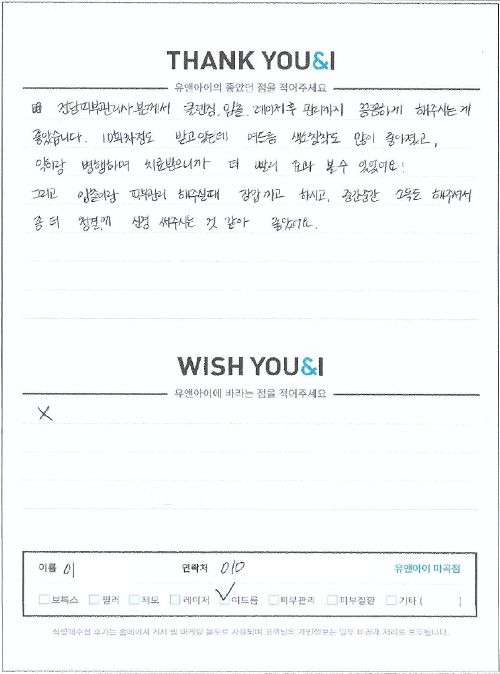 THANK YOU&I
유앤아이의 좋았던 점을 적어주세요
전담피부관리사분께서 클렌징, 압출, 레이저후 관리까지 꼼꼼하게 해주시는게
좋았습니다. 10회차정도 받고있는데 여드름 색소침착도 많이 좋아졌고,
약이랑 병행하며 치료받으니까 더 빨리 효과 볼 수 있었어요!
그리고 압출이랑 피부관리 해주실때 장갑 끼고 하시고, 중간중간 소독도 해주셔서
좀 더 청결에 신경 써주시는 것 같아 좋았어요.
WISH YOU&I
유앤아이에 바라는 점을 적어주세요
X
이름 이 연락처 010 유앤아이 마곡점
보톡스 필러 제모 레이저 ✓여드름 피부관리 피부질환 기타 ( )
작성해주신 후기는 홈페이지 게시 및 마케팅 용도로 사용되며 고객님의 개인정보는 일부 모자이크 처리로 보호됩니다.